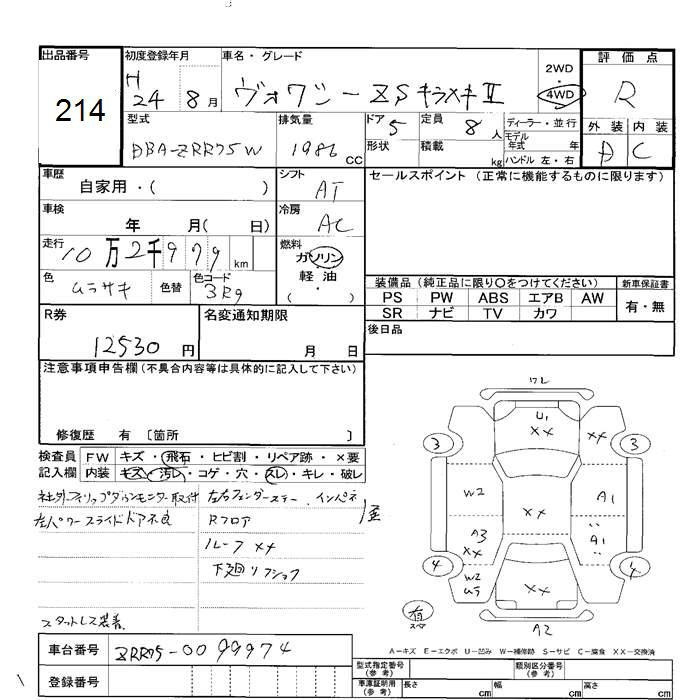 出品番号 初度登録年月 車名・グレード 評価点
214
H 24 8月 ヴォクシーZSキラメキⅡ 2WD・4WD R
型式 排気量 ドア 定員 ディーラー・並行 外装 内装
DBA-ZRR75W 1986 CC 5 8人 モデル年式 年 D C
形状 積載 kg ハンドル 左・右
車歴 シフト セールスポイント (正常に機能するものに限ります)
自家用・( ) AT
車検 冷房
年 月( 日) AC
走行 燃料
10万2千979km ガソリン
軽油
・( )
色 色替 色コード
ムラサキ 3R9
装備品 (純正品に限り〇をつけてください) 新車保証書
PS PW ABS エアB AW 有・無
SR ナビ TV カワ
R券 名変通知期限 後日品
12530円 月 日
注意事項申告欄(不具合内容等は具体的に記入して下さい)
修復歴 有 〔箇所 〕
検査員 FW キズ・飛石・ヒビ割・リペア跡・×要
記入欄 内装 キズ・汚レ・コゲ・穴・スレ・キレ・破レ
社外フィリップダウンモニター取付 左右フェンダーステー、インパネ
左パワースライドドア不良 Rフロア
ルーフ××
下廻リフショック
スタットレス装着
ワレ
U1
××
××
3 3
W2 A1
××
A3 A1
××
4 4
W2
××
有
スペア
A2
A-キズ E-エクボ U-凹み W-補修跡 S-サビ C-腐食 XX-交換済
車台番号 ZRR75-0099974
登録番号
型式指定番号 (参考) 類別区分番号 (参考)
車庫証明用 (参考) 長さ cm 幅 cm 高さ cm